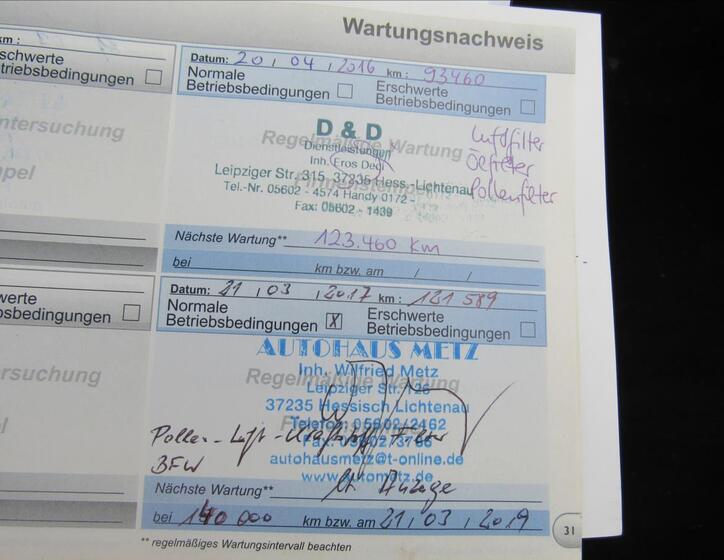 Wartungsnachweis
km :
schwerte
triebsbedingungen
ntersuchung
pel
Datum: 20 , 04 , 2016 km : 93460
Normale
Betriebsbedingungen
Erschwerte
Betriebsbedingungen
D & D
Dienstleistungen
Regelmäßige Wartung
Inh. Eros Dedi
Leipziger Str. 315, 37235 Hess.-Lichtenau
Tel.-Nr. 05602 - 4574 Handy 0172 -
Fax: 05602 - 1439
Luftfilter
Ölfilter
Pollenfilter
Nächste Wartung** 123.460 km
bei km bzw. am / /
werte
sbedingungen
ersuchung
Datum: 21 , 03 , 2017 km : 121 589
Normale
Betriebsbedingungen X
Erschwerte
Betriebsbedingungen
AUTOHAUS METZ
Inh. Wilfried Metz
Regelmäßige Wartung
Leipziger Str. 126
37235 Hessisch Lichtenau
Telefon 05602/2462
Fax: 05602/3766
Pollen-Luft-Kraftstoff-Filter
BFW
autohausmetz@t-online.de
www.autometz.de
Nächste Wartung** lt. Anzeige
bei 140 000 km bzw. am 21 , 03 , 2019
** regelmäßiges Wartungsintervall beachten
31